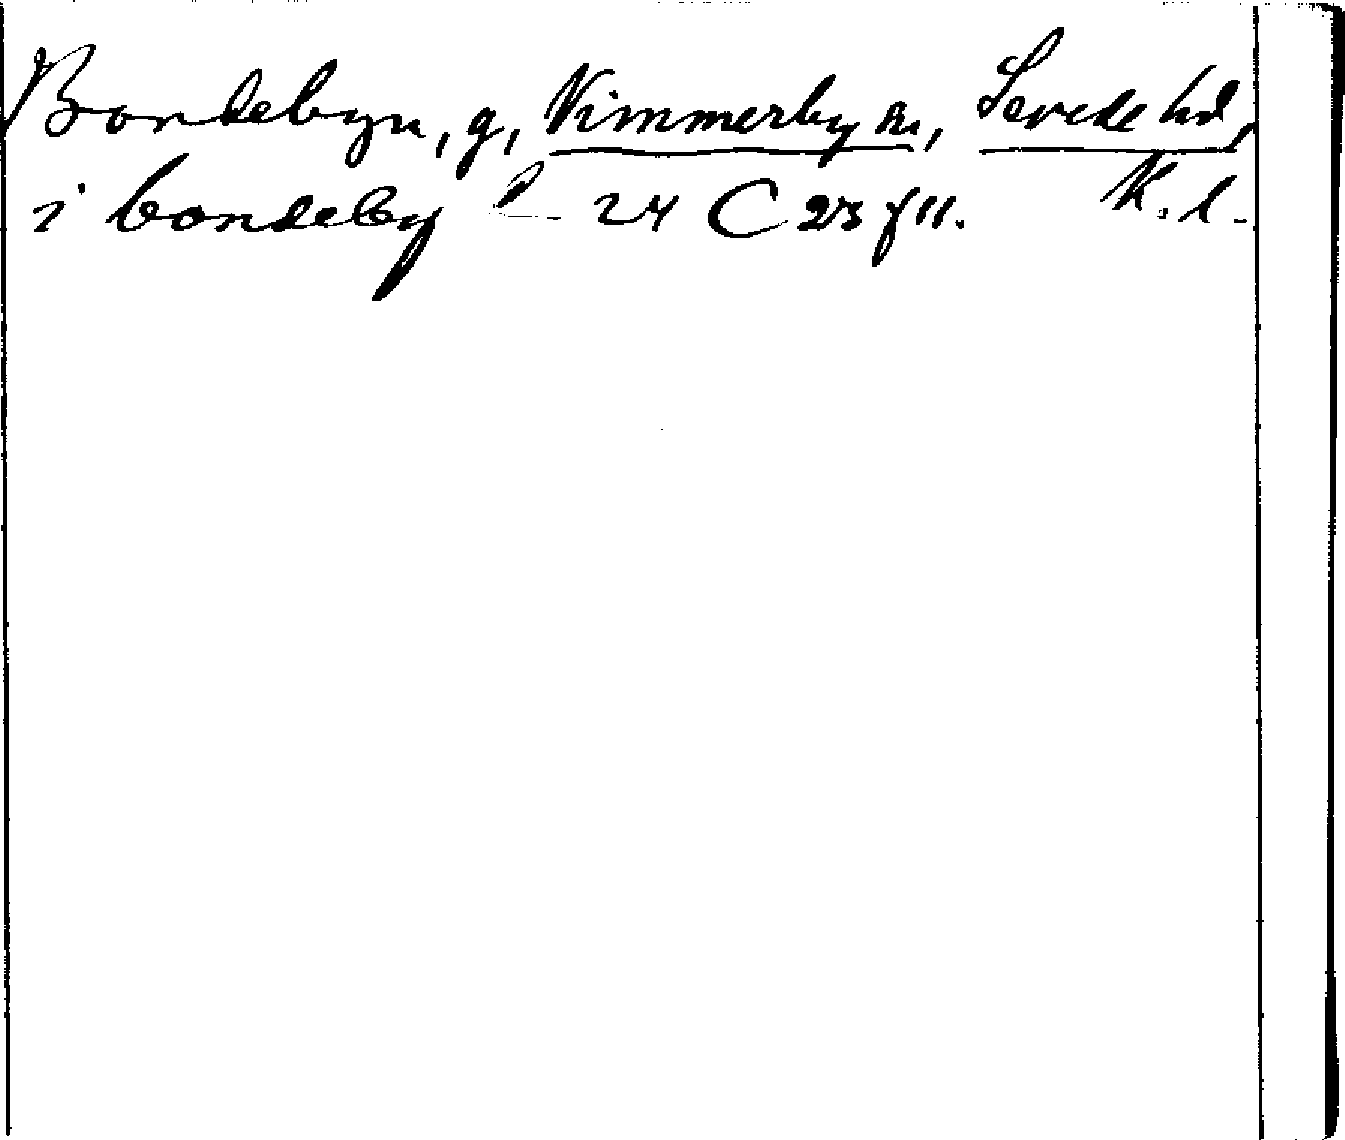 Bondebyn, g, Vimmerby sn, Sevede hd,
i bondeby 24 C 23 f 11. K. l.